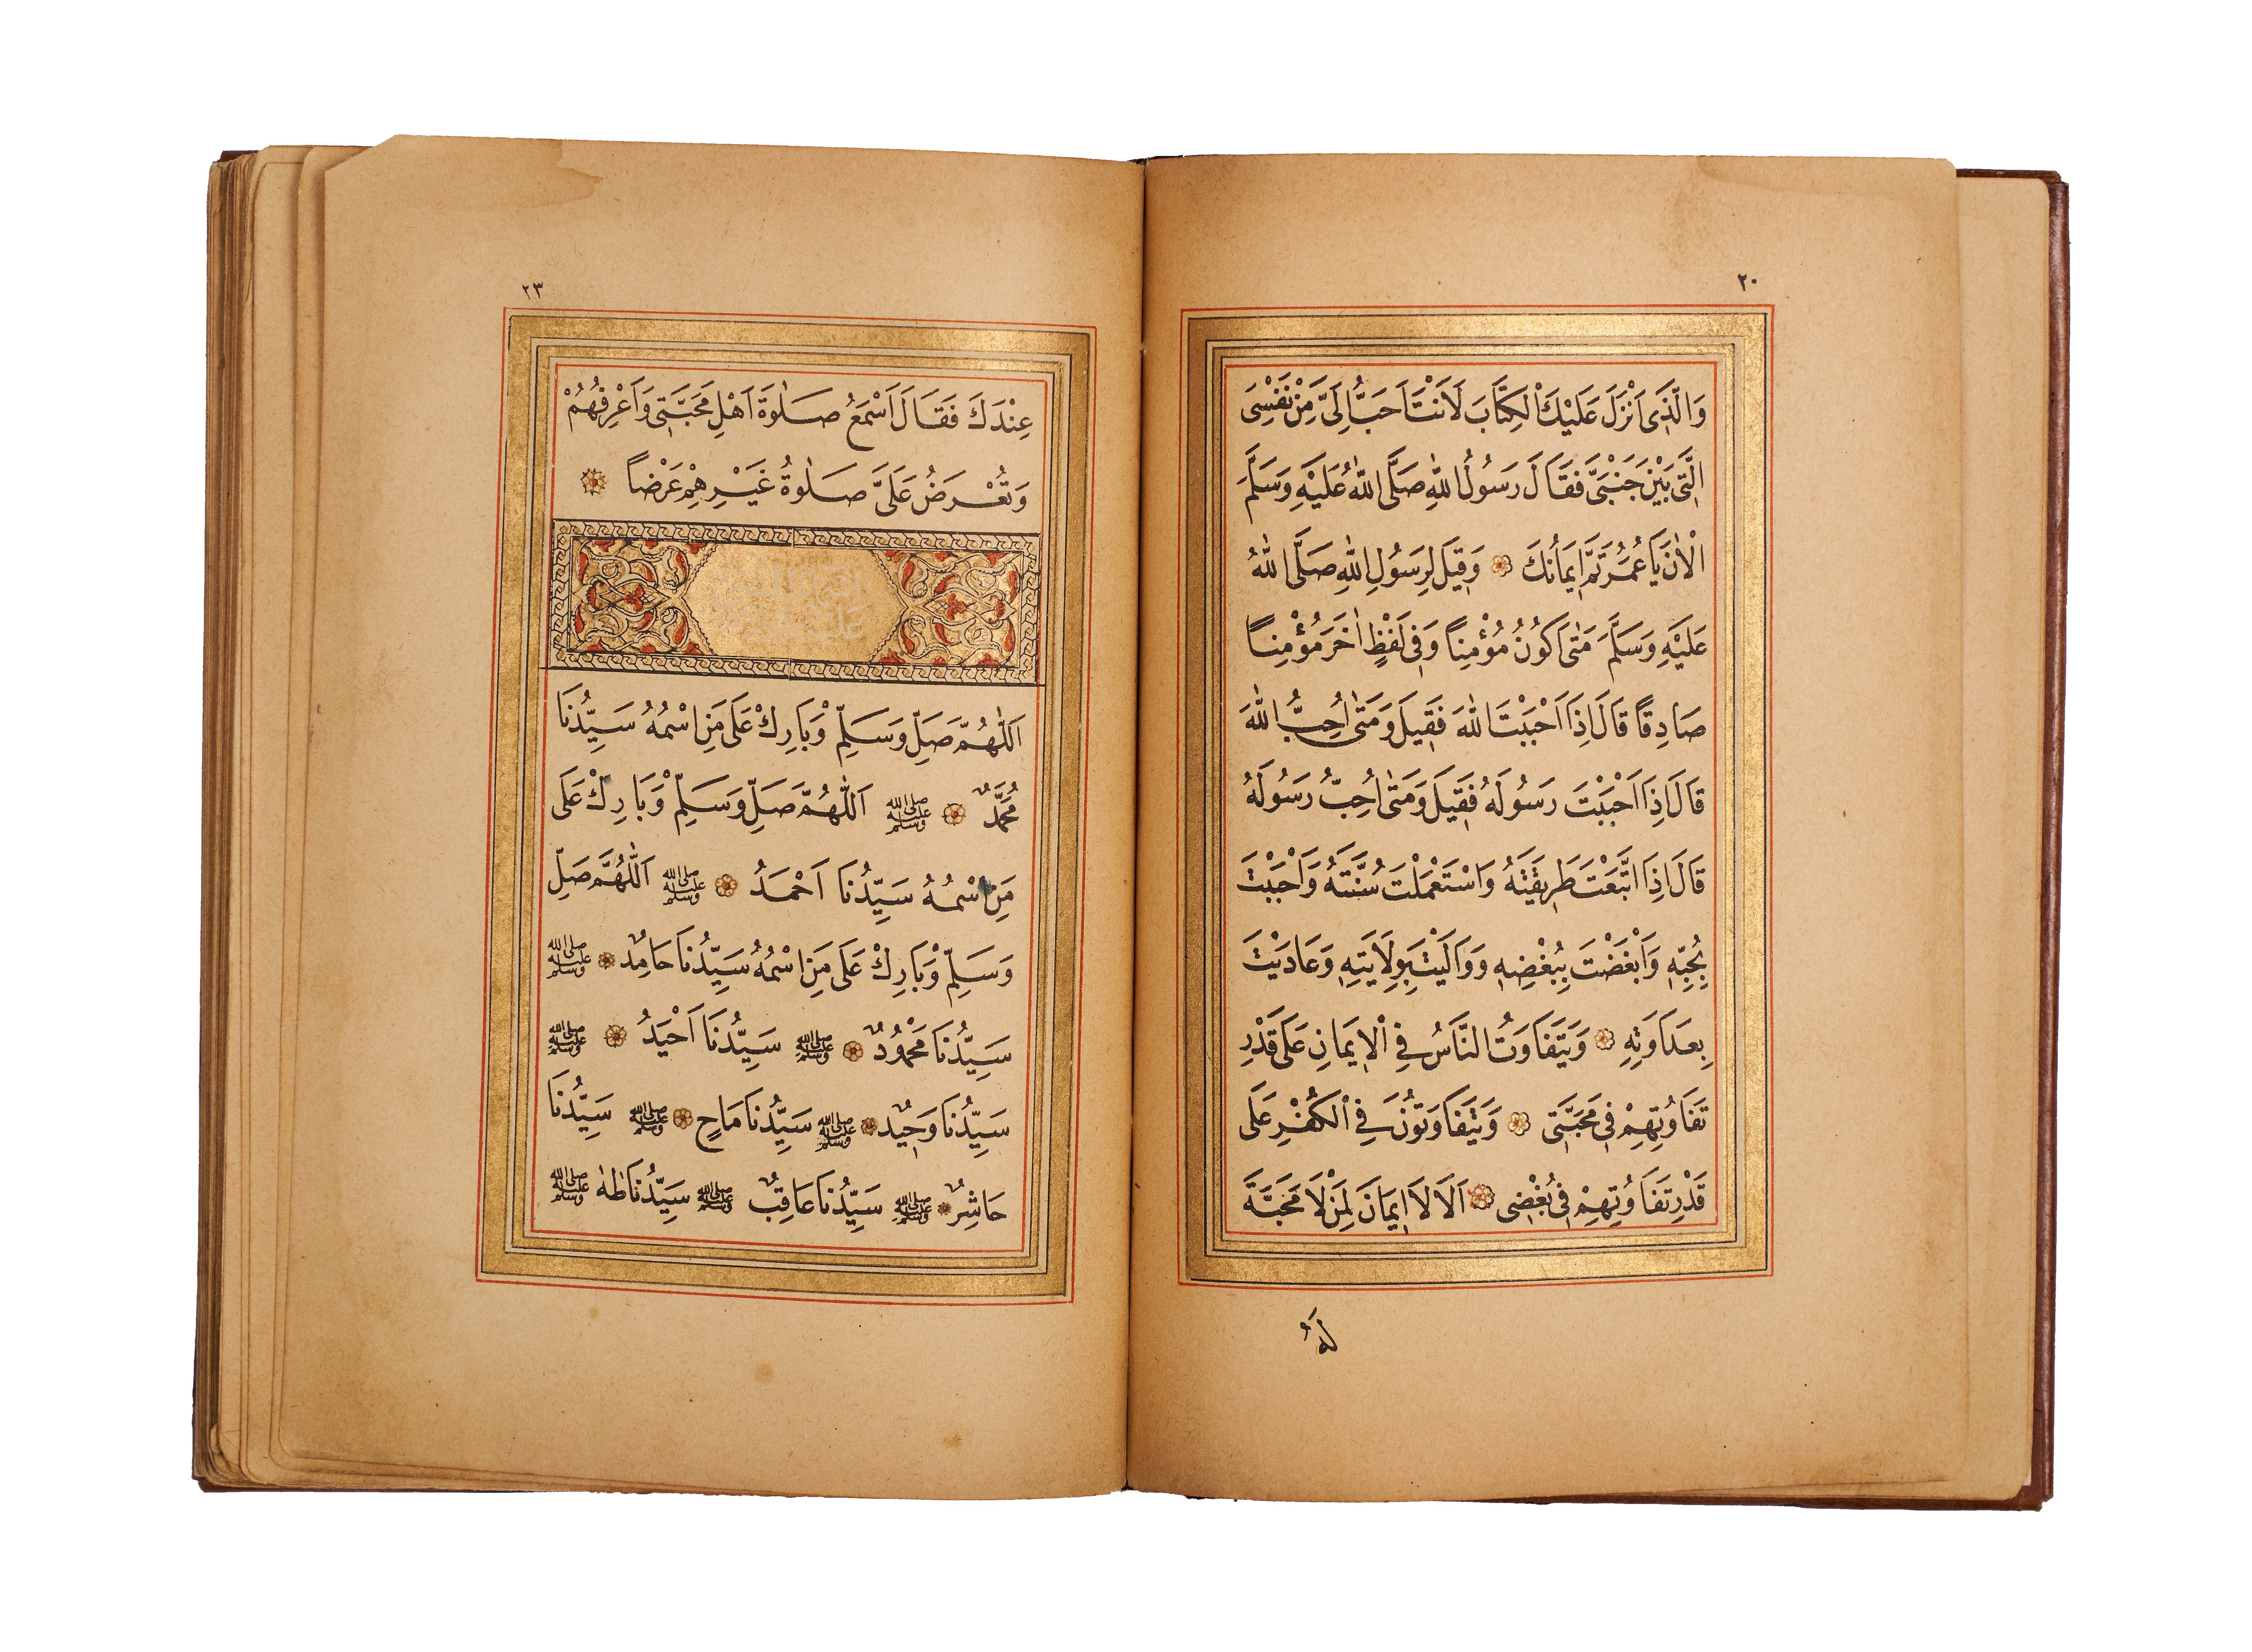 ٢٠
وَالَّذِى اَنْزَلَ عَلَيْكَ الْكِتَابَ لَاَنْتَ اَحَبُّ اِلَىَّ مِنْ نَفْسِىَ
الَّتِى بَيْنَ جَنْبَىَّ فَقَالَ رَسُولُ اللّٰهِ صَلَّى اللّٰهُ عَلَيْهِ وَسَلَّمَ
الْاٰنَ يَا عُمَرُ تَمَّ اِيمَانُكَ وَقِيلَ لِرَسُولِ اللّٰهِ صَلَّى اللّٰهُ
عَلَيْهِ وَسَلَّمَ مَتٰى اَكُونُ مُؤْمِنًا وَفِى لَفْظٍ اٰخَرَ مُؤْمِنًا
صَادِقًا قَالَ اِذَا اَحْبَبْتَ اللّٰهَ فَقِيلَ وَمَتٰى اُحِبُّ اللّٰهَ
قَالَ اِذَا اَحْبَبْتَ رَسُولَهُ فَقِيلَ وَمَتٰى اُحِبُّ رَسُولَهُ
قَالَ اِذَا اتَّبَعْتَ طَرِيقَتَهُ وَاسْتَعْمَلْتَ سُنَّتَهُ وَاَحْبَبْتَ
بِحُبِّهِ وَاَبْغَضْتَ بِبُغْضِهِ وَوَالَيْتَ بِوِلَايَتِهِ وَعَادَيْتَ
بِعَدَاوَتِهِ وَيَتَفَاوَتُ النَّاسُ فِى الْاِيمَانِ عَلَى قَدْرِ
تَفَاوُتِهِمْ فِى مَحَبَّتِى وَيَتَفَاوَتُونَ فِى الْكُفْرِ عَلَى
قَدْرِ تَفَاوُتِهِمْ فِى بُغْضِى اَلَا لَا اِيمَانَ لِمَنْ لَا مَحَبَّةَ
لَهُ
٢٣
عِنْدَكَ فَقَالَ اَسْمَعُ صَلٰوةَ اَهْلِ مَحَبَّتِى وَاَعْرِفُهُمْ
وَتُعْرَضُ عَلَىَّ صَلٰوةُ غَيْرِهِمْ عَرْضًا
اَللّٰهُمَّ صَلِّ وَسَلِّمْ وَبَارِكْ عَلَى مَنِ اسْمُهُ سَيِّدُنَا
مُحَمَّدٌ صلى الله عليه وسلم اَللّٰهُمَّ صَلِّ وَسَلِّمْ وَبَارِكْ عَلَى
مَنِ اسْمُهُ سَيِّدُنَا اَحْمَدُ صلى الله عليه وسلم اَللّٰهُمَّ صَلِّ
وَسَلِّمْ وَبَارِكْ عَلَى مَنِ اسْمُهُ سَيِّدُنَا حَامِدٌ صلى الله عليه وسلم
سَيِّدُنَا مَحْمُودٌ صلى الله عليه وسلم سَيِّدُنَا اَحْيَدُ صلى الله عليه وسلم
سَيِّدُنَا وَحِيدٌ صلى الله عليه وسلم سَيِّدُنَا مَاحٍ صلى الله عليه وسلم سَيِّدُنَا
حَاشِرٌ صلى الله عليه وسلم سَيِّدُنَا عَاقِبٌ صلى الله عليه وسلم سَيِّدُنَا طٰهٰ صلى الله عليه وسلم